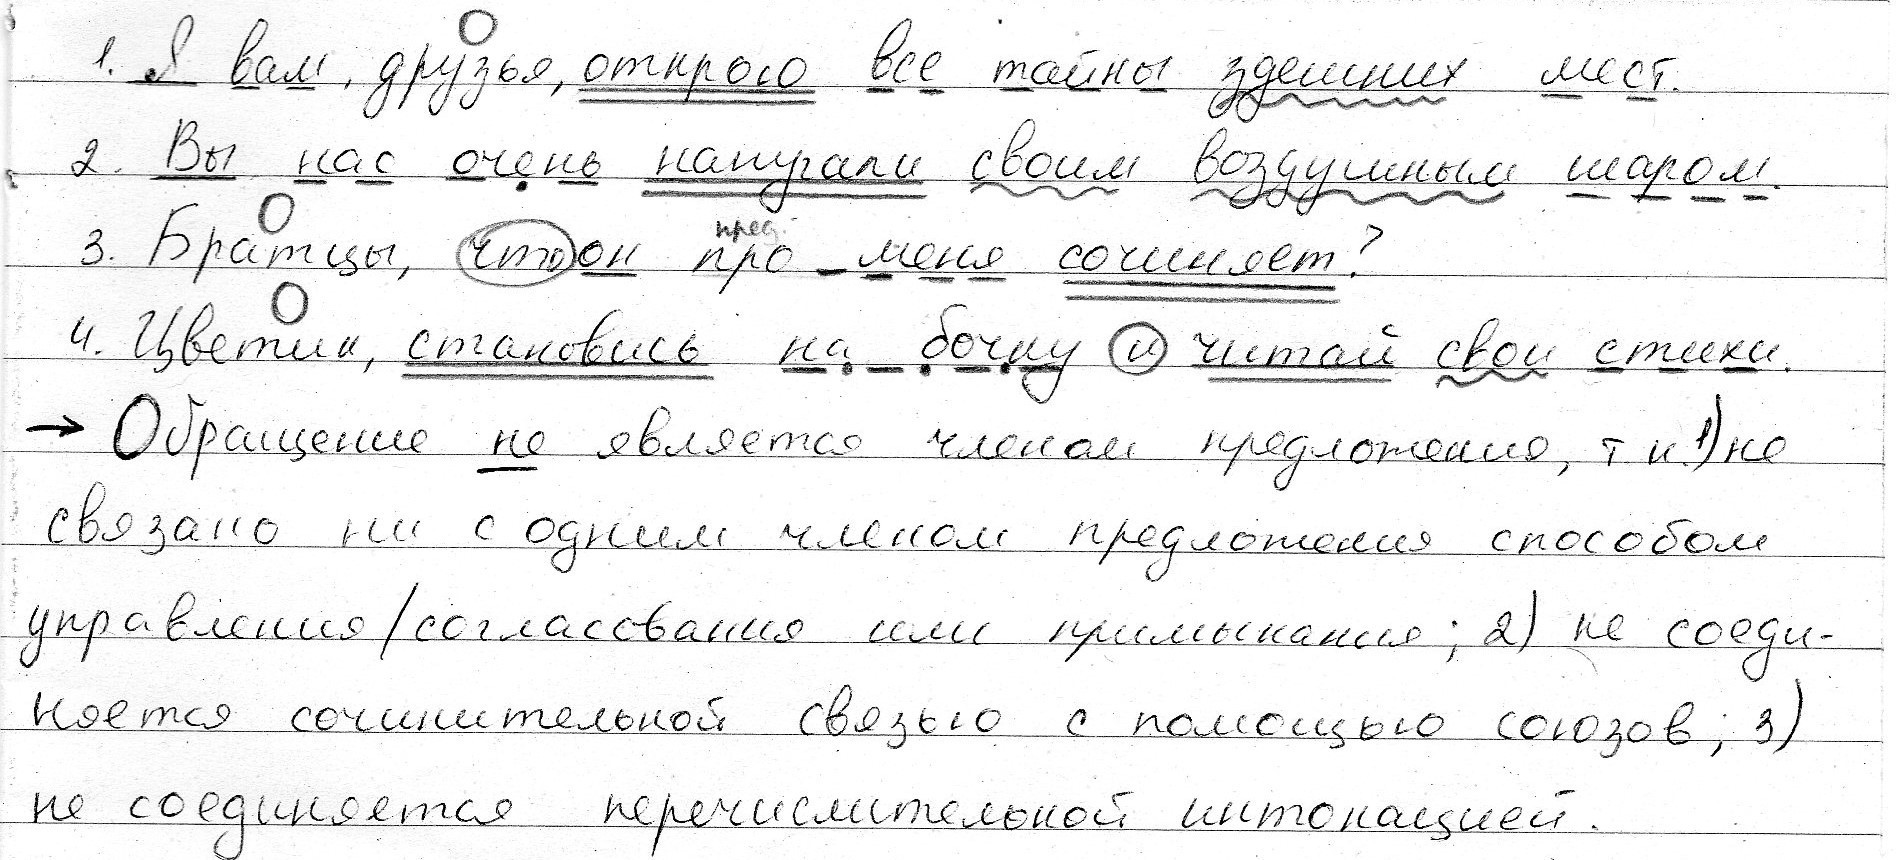 1. Я вам, друзья, открою все тайны здешних мест.
2. Вы нас очень напугали своим воздушным шаром.
пред.
3. Братцы, что он про меня сочиняет?
4. Цветик, становись на бочку и читай свои стихи.
→ Обращение не является членом предложения, т к. 1) не
связано ни с одним членом предложения способом
управления/согласования или примыкания; 2) не соеди-
няется сочинительной связью с помощью союзов; 3)
не соединяется перечислительной интонацией.